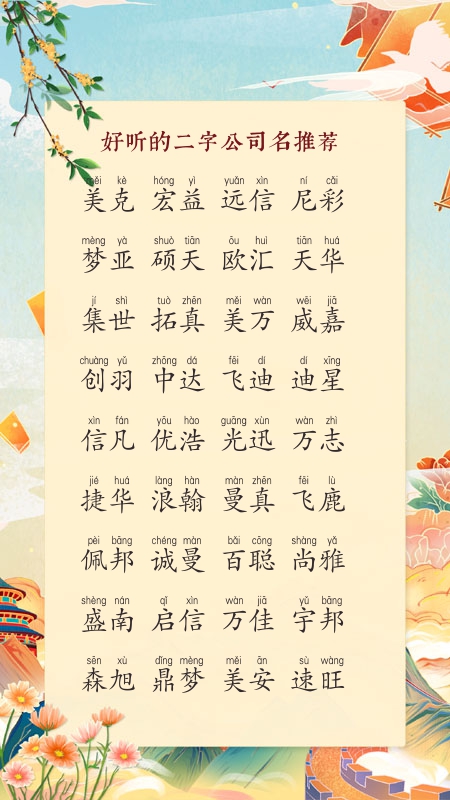 好听的二字公司名推荐
měi kè hóng yì yuǎn xìn ní cǎi
美克 宏益 远信 尼彩
mèng yà shuò tiān ōu huì tiān huá
梦亚 硕天 欧汇 天华
jí shì tuò zhēn měi wàn wēi jiā
集世 拓真 美万 威嘉
chuàng yǔ zhōng dá fēi dí dí xīng
创羽 中达 飞迪 迪星
xìn fán yōu hào guāng xùn wàn zhì
信凡 优浩 光迅 万志
jié huá làng hàn màn zhēn fēi lù
捷华 浪翰 曼真 飞鹿
pèi bāng chéng màn bǎi cōng shàng yǎ
佩邦 诚曼 百聪 尚雅
shèng nán qǐ xìn wàn jiā yǔ bāng
盛南 启信 万佳 宇邦
sēn xù dǐng mèng měi ān sù wàng
森旭 鼎梦 美安 速旺